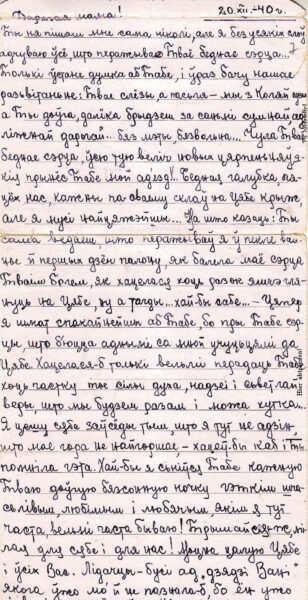 Дарагая мама!
20 XII.-40 г.
Ты ня пішаш мне сама ніколі, але я без усякіх слоў
адчуваю ўсё, што перажывае Тваё беднае сэрца...
Толькі ўстане думка аб Табе, і ўраз бачу нашае
разьвітаньне: Твае сьлёзы, а пасьля - мы з Коляй
а Ты доўга, далёка брыдзеш за санямі сумнай
сьнежнай дарогай... без мэты, бязвольна... Чула Тваё
беднае сэрца, ўсю тую веліч новых цярпеньняў,
якія прынёс Табе мой ад'езд!.. Бедная галубка,
нас, кажны па сваему склаў на Цябе крыж,
але я мусі найцяжэйшы... Ды што казаць: Ты
сама ведаеш, што перажываў я ў пекле вай-
ны й першых дзён палону, як балела маё сэрца
Тваім болем, як хацелася хоць разок яшчэ гля-
нуць на Цябе, ну а тады... хай бы сабе... - Цяпер
я шмат спакайнейшы аб Табе, бо пры Табе сэр-
цы, што б'юцца аднымі са мной учуцьцямі да
Цябе. Хацелася-б толькі вельмі перадаць Табе
хоць частку тэй сілы духа, надзеі і сьветлай
веры, што мы будзем разам і можа хутка.
Я цешу сябе заўсёды тым, што я тут не адзін,
што маё гора не найгоршае, - хацеў-бы каб і Ты
помніла гэта. Хай-бы я сьніўся Табе кажную
Тваю доўгую бяссонную ночку гэткім шча-
сьлівым, любімым і любячым, якім я тут
часта, вельмі часта бываю! Трымайся-ж, мі-
лая для сябе і для нас! Моцна цалую Цябе
і ўсіх Вас. Лідачцы - бусі ад "дзядзі Вані"
якога ўжо мо й не пазнала-б, бо ён ужо